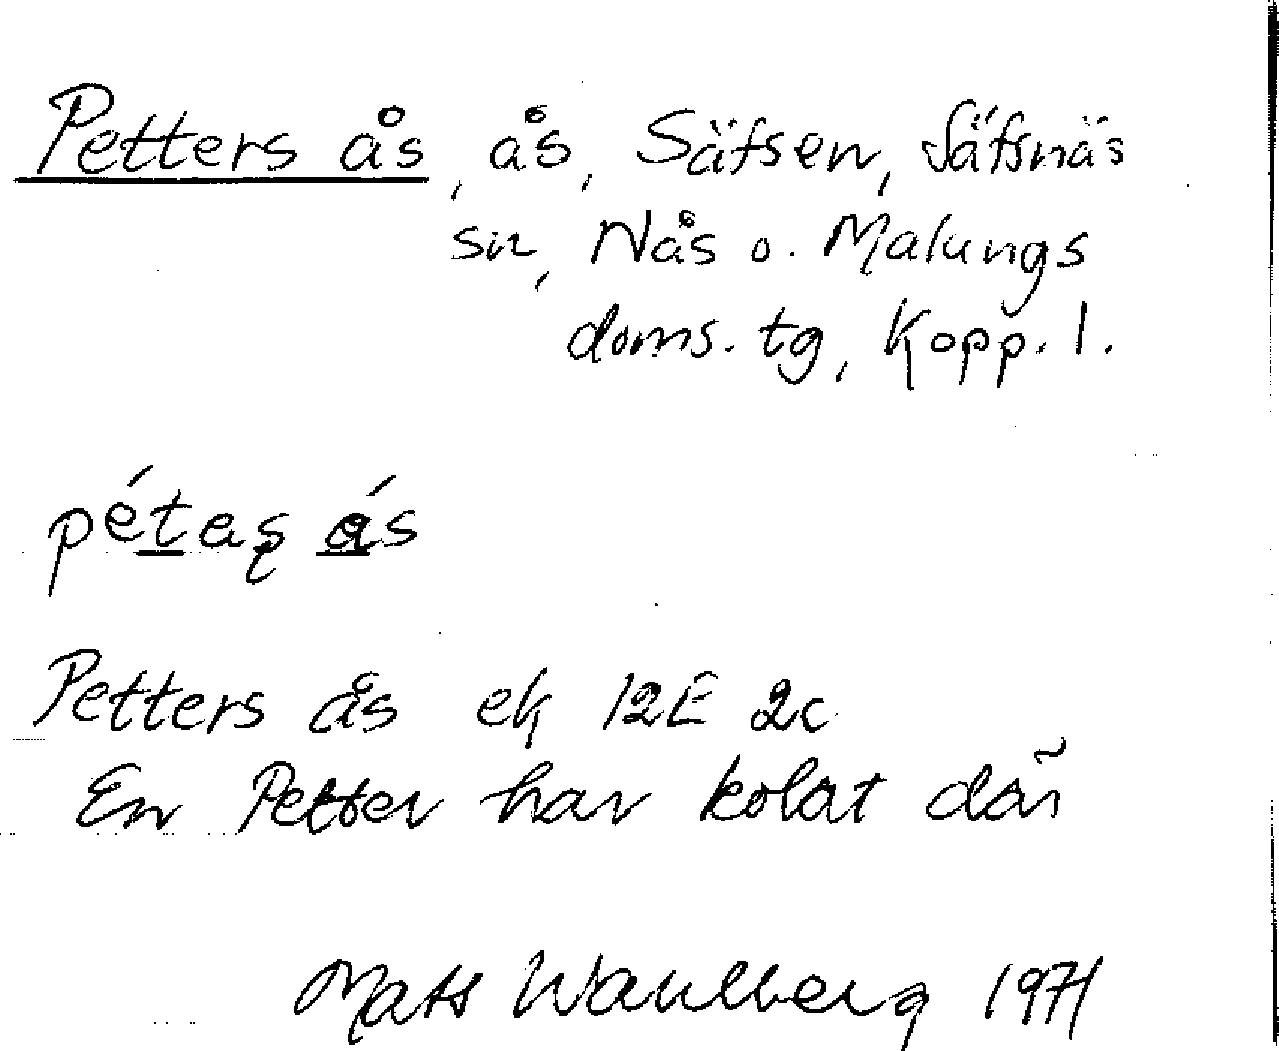 Petters ås, ås, Säfsen, Säfsnäs
sn, Nås o. Malungs
doms. tg, Kopp. l.
pétaş ás
Petters ås ek 12E 2c
En Petter har kolat där
Mats Wahlberg 1971